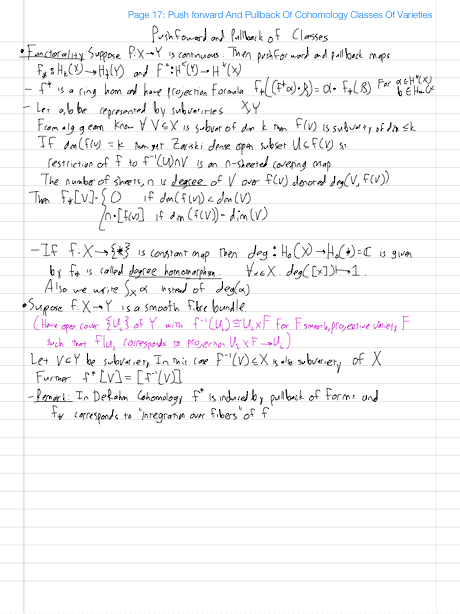 Page 17: Push forward And Pullback Of Cohomology Classes Of Varieties
Pushforward and Pullback of Classes
• Functorality: Suppose f: X→Y is continuous. Then pushforward and pullback maps
f_* : H_k(X) → H_k(Y) and f^* : H^k(Y) → H^k(X)
- f^* is a ring hom and have projection formula f_*((f^*α)·β) = α·f_*(β) For α∈H^k(X)
- Let a,b be represented by subvarieties X,Y
From alg geom know ∀ V⊆X is subvar of dim k then f(V) is subvariety of dim ≤k
If dim(f(V)) = k then get Zariski dense open subset U⊆f(V) st.
restriction of f to f^{-1}(U)∩V is an n-sheeted covering map
The number of sheets, n is degree of V over f(V) denoted deg(V, f(V))
Then f_*[V] = { 0 if dim(f(V)) < dim(V)
n·[f(V)] if dim(f(V)) = dim(V)
- If f: X→{*} is constant map Then deg: H_0(X)→H_0(*)=ℂ is given
by f_* is called degree homomorphism. ∀x∈X. deg([x])↦1.
Also we write ∫_X α instead of deg(α)
• Suppose f: X→Y is a smooth fibre bundle
(Have open cover {U_i} of Y with f^{-1}(U_i) ≅ U_i×F for F smooth, projective variety F
such that f|U_i corresponds to projection U_i×F→U_i)
Let V⊆Y be subvariety. In this case f^{-1}(V)⊆X is also subvariety of X
Further f^*[V] = [f^{-1}(V)]
- Remark: In DeRahm Cohomology f^* is induced by pullback of forms and
f_* corresponds to "integration over fibers" of f